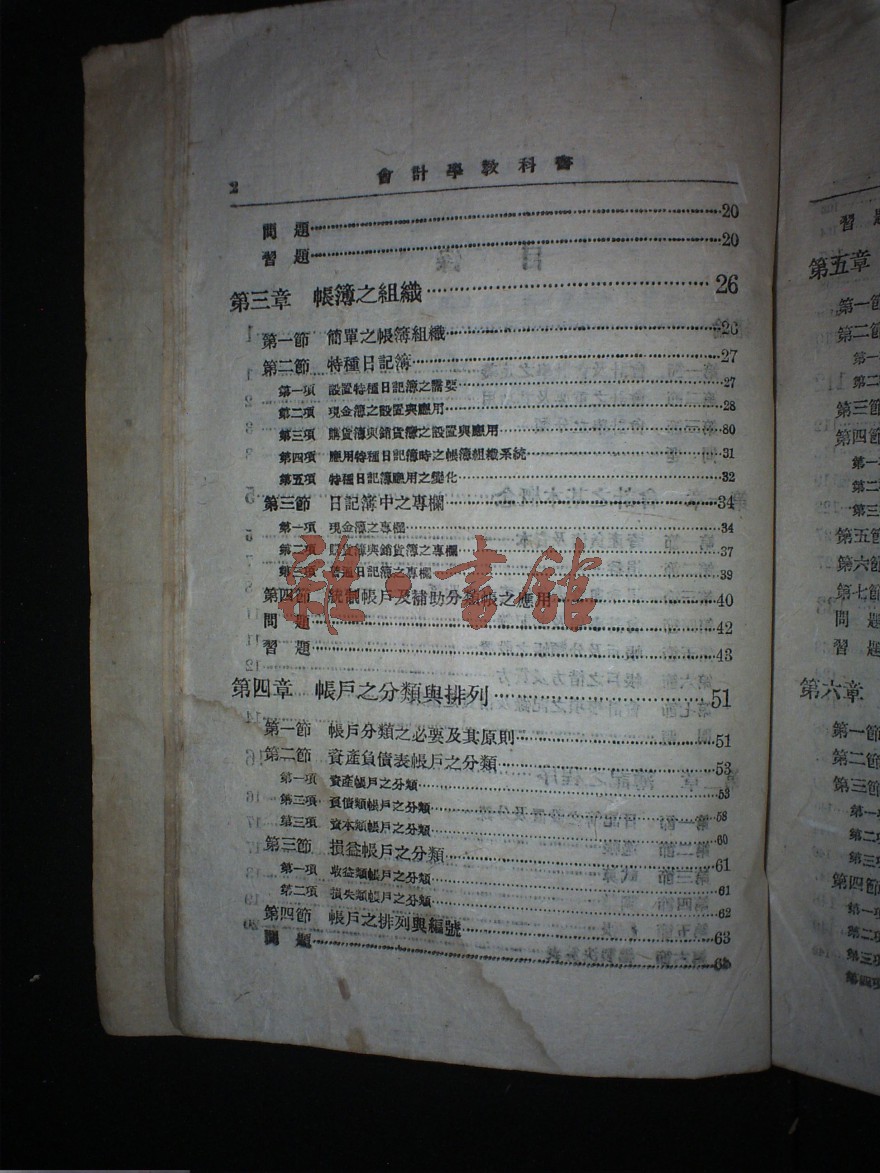 2
會計學教科書
問題 20
習題 20
第三章 帳簿之組織 26
第一節 簡單之帳簿組織 26
第二節 特種日記簿 27
第一項 設置特種日記簿之需要 27
第二項 現金簿之設置與應用 28
第三項 購貨簿與銷貨簿之設置與應用 30
第四項 應用特種日記簿時之帳簿組織系統 31
第五項 特種日記簿應用之變化 32
第三節 日記簿中之專欄 34
第一項 現金簿之專欄 34
第二項 購貨簿與銷貨簿之專欄 37
第三項 普通日記簿之專欄 39
第四節 統制帳戶及補助分類帳之應用 40
問題 42
習題 43
第四章 帳戶之分類與排列 51
第一節 帳戶分類之必要及其原則 51
第二節 資產負債表帳戶之分類 53
第一項 資產帳戶之分類 53
第二項 負債類帳戶之分類 58
第三項 資本類帳戶之分類 60
第三節 損益帳戶之分類 61
第一項 收益類帳戶之分類 61
第二項 損失類帳戶之分類 62
第四節 帳戶之排列與編號 63
問題 65
雜·書館
習題
第五章
第一節
第二節
第一
第二
第三節
第四節
第一
第二
第三
第五節
第六節
第七節
問題
習題
第六章
第一節
第二節
第三節
第一
第二
第三
第四節
第一
第二項
第三項
第四項